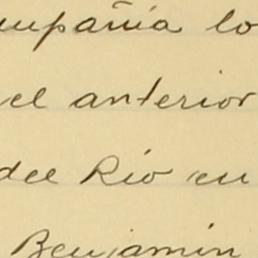 mpañia lo
el anterior
del Rio en
Benjamin